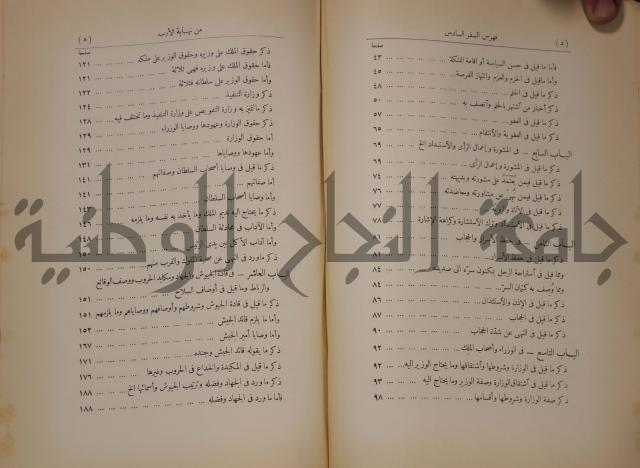 (د) فهرس السفر السادس
صفحة
فأما ما قيل فى حسن السياسة أو إقامة المملكة ... ٤٣
وأما ما قيل فى الحزم والعزم وانتهاز الفرصة ... ٤٥
ذكر ما قيل فى الحلم ... ٤٨
ذكر أخبار من اشتهر بالحلم واتصف به ... ٥٠
ذكر ما قيل فى العفو ... ٥٧
ذكر ما قيل فى العقوبة والانتقام ... ٦٥
الباب السابع ــ فى المشورة وإعمال الرأى والاستبداد الخ ٦٩
ذكر ما قيل فى المشورة وإعمال الرأى ... ٦٩
ذكر ما قيل فيمن يعتمد على مشورته وبديهته ٧٤
ذكر ما قيل فيمن نهى عن مشاورته ومعاضدته ٧٦
ذكر ما قيل فى الأناة والروية ... ٧٧
ذكر ما قيل فى الاستبداد وترك الاستشارة وكراهة الإشارة ٧٨
الباب الثامن ــ فى حفظ الأسرار والحجاب ٨١
ذكر ما قيل فى حفظ الأسرار ... ٨١
ومما قيل فى استراحة الرجل بمكنون سره الى صديقه ٨٤
ومما وصف به كتمان السر ... ٨٤
ذكر ما قيل فى الإذن والاستئذان ... ٨٦
ذكر ما قيل فى الحجاب ... ٨٧
ذكر ما قيل فى النهى عن شدة الحجاب ... ٩٠
الباب التاسع ــ فى الوزراء وأصحاب الملك ... ٩٢
ذكر ما قيل فى الوزارة وشروطها واشتقاقها وما يحتاج الوزير اليه ... ٩٢
ذكر ما قيل فى اشتقاق الوزارة وصفة الوزير وما يحتاج اليه ... ٩٣
ذكر صفة الوزارة وشروطها وأقسامها ... ٩٨
من نهاية الأرب (ه)
صفحة
ذكر حقوق الملك على وزيره وحقوق الوزير على ملكه ... ١٢١
فأما حقوق الملك على وزيره فهى ثلاثة ... ١٢١
وأما حقوق الوزير على سلطانه فثلاثة ... ١٢٢
ذكر وزارة التنفيذ ... ١٢٤
ذكر ما تتميز به وزارة التفويض على وزارة التنفيذ وما تختلف فيه ١٢٨
ذكر حقوق الوزارة وعهودها ووصايا الوزراء ١٢٩
أما حقوق الوزارة ... ١٢٩
وأما عهودها ووصاياها ... ١٣١
ذكر ما قيل فى وصايا أصحاب السلطان وصفاتهم ١٤١
أما صفاتهم ... ١٤١
وأما وصايا أصحاب السلطان ...
ذكر ما يحتاج اليه نديم الملك وما يأخذ به نفسه وما يلزمه ١٤٣
وأما الآداب فى محادثة السلطان ... ١٤٧
وأما آداب الأكل بين يدى الرئيس ... ١٤٨
ذكر ما ورد فى النهى عن صحبة الملوك والقرب منهم ١٥٠
الباب العاشر ــ فى قادة الجيوش والجهاد ومكايد الحروب ووصف الوقائع
والرباط وما قيل فى أوصاف السلاح ... ١٥١
ذكر ما قيل فى قادة الجيوش وشروطهم وأوصافهم ووصاياهم وما يلزمهم ١٥١
وأما ما يلزم قائد الجيش ... ١٥٣
وأما وصايا أمير الجيش ... ١٦٧
ذكر ما يقوله قائد الجيش وجنده ... ١٧١
ذكر ما قيل فى المكيدة والخداع فى الحروب وغيرها ... ١٧٦
ذكر ما ورد فى الجهاد وفضله وترتيب الجيوش وأسمائها الخ ١٨٨
فأما ما ورد فى الجهاد وفضله ... ١٨٨
جامعة النجاح الوطنية